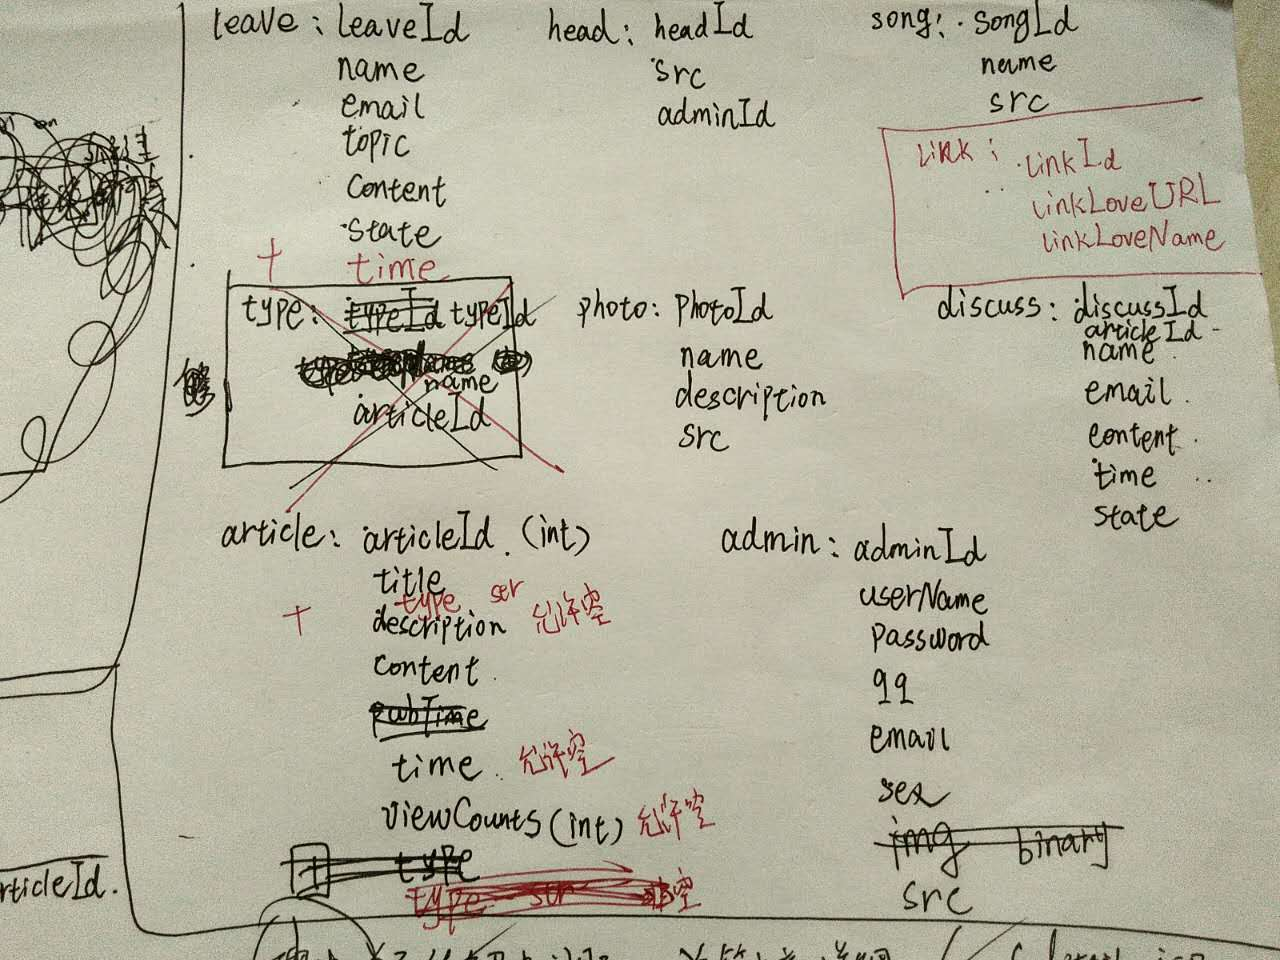 leave: leaveId
name
email
topic
content
state
+ time
head: headId
src
adminId
song: songId
name
src
Link: linkId
linkLoveURL
linkLoveName
type: typeId typeId
name
articleId
photo: photoId
name
description
src
discuss: discussId
articleId
name
email
content
time
state
article: articleId (int)
title
+ type ser
description 允许空
content
pubTime
time 允许空
viewCounts (int) 允许空
+ type
type 空
admin: adminId
userName
password
qq
email
sex
img binary
src
rticleId.